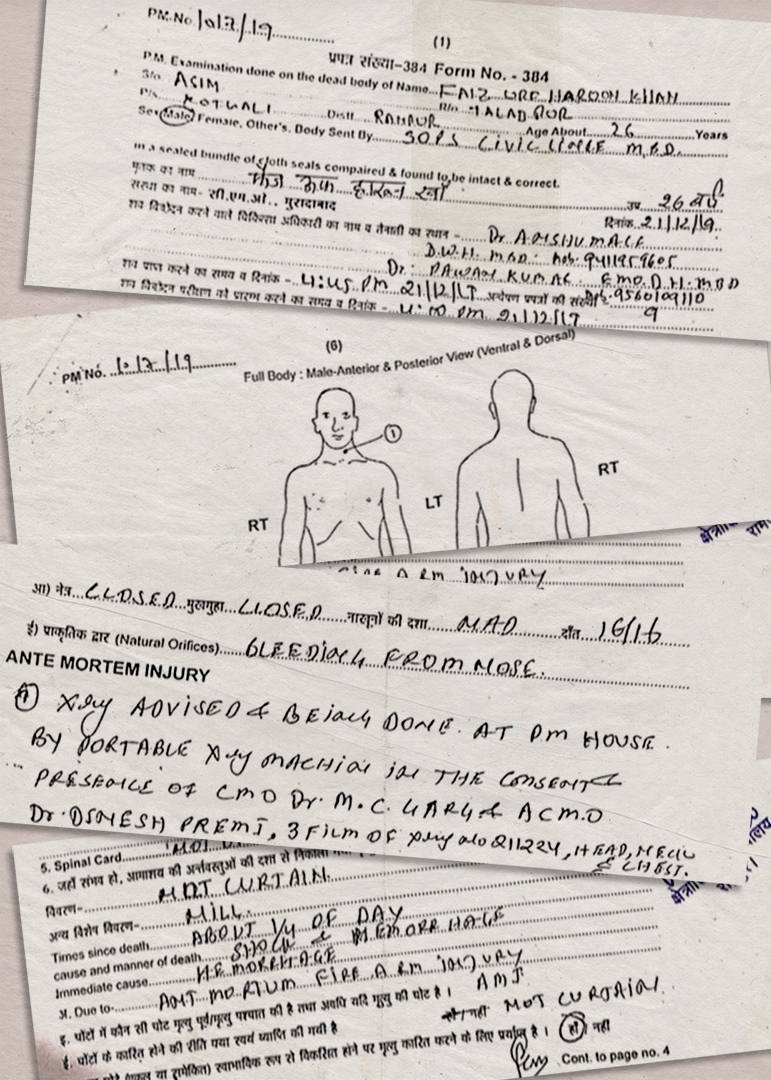 PM.No. 1017/19
(1)
प्रपत्र संख्या-384 Form No. - 384
P.M. Examination done on the dead body of Name... FAIZ URF HAROON KHAN
S/o. ASIM R/o.
P/s. KOTWALI Distt RAMPUR Age About 26 Years
Sex Male/ Female, Other's, Body Sent By SOPS CIVIC LINE M.B.D.
In a sealed bundle of cloth seals compaired & found to be intact & correct.
मृतक का नाम उम्र 26 वर्ष
संस्था का नाम- सी.एम.ओ., मुरादाबाद दिनांक. 21/12/19
शव विच्छेदन करने वाले चिकित्सा अधिकारी का नाम व तैनाती का स्थान - Dr. ANSHUMALI
D.W.H. MBD. Mob. 9411959605
Dr. PAWAN KUMAR EMO. D.H. MBD
शव प्राप्त करने का समय व दिनांक - 4:45 PM 21/12/19 अन्वेषण प्रपत्रों की संख्या 9
शव विच्छेदन परीक्षण को प्रारम्भ करने का समय व दिनांक - PM 21/12/19
PM No. 1017/19
(6)
Full Body : Male-Anterior & Posterior View (Ventral & Dorsal)
1
RT LT RT
FIRE ARM INJURY
आ) नेत्र... CLOSED मुखगुहा... CLOSED नाखूनों की दशा... NAD दाँत 16/16
ई) प्राकृतिक द्वार (Natural Orifices)... BLEEDING FROM NOSE.
ANTE MORTEM INJURY
1 Xray ADVISED & BEING DONE AT PM HOUSE.
BY PORTABLE Xray MACHINE IN THE CONSENT &
PRESENCE OF CMO Dr. M.C. GARG & ACMO
Dr. DINESH PREMI, 3 FILM OF Xray NO 211224, HEAD, NECK
& CHEST.
5. Spinal Card...
6. जहाँ संभव हो, आमाशय की अन्तर्वस्तुओं की दशा से निकाला
विवरण- NOT CURTAIN.
अन्य विशेष विवरण- NILL.
Times since death... ABOUT 1/4 OF DAY
cause and manner of death... SHOCK & HEMORRHAGE
Immediate cause... HEMORRHAGE
अ. Due to- ANT MORTUM FIRE ARM INJURY
इ. चोटों में कौन सी चोट मृत्यु पूर्व/मृत्यु पश्चात की है तथा अवधि यदि मृत्यु की चोट है। AMI
ई. चोटों के कारित होने की रीति क्या स्वयं व्यापित की गयी है नहीं NOT CURTAIN.
स्वाभाविक रूप से विकसित होने पर मृत्यु कारित करने के लिए पर्याप्त है। हाँ नहीं
Cont. to page no. 4